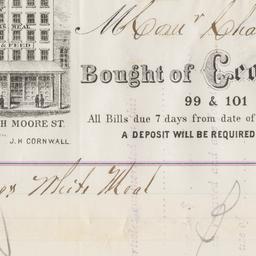 S. MEAL
& FEED
H MOORE ST.
J. H. CORNWALL
Bought of Geo
99 & 101
All Bills due 7 days from date of
A DEPOSIT WILL BE REQUIRED
White Meal